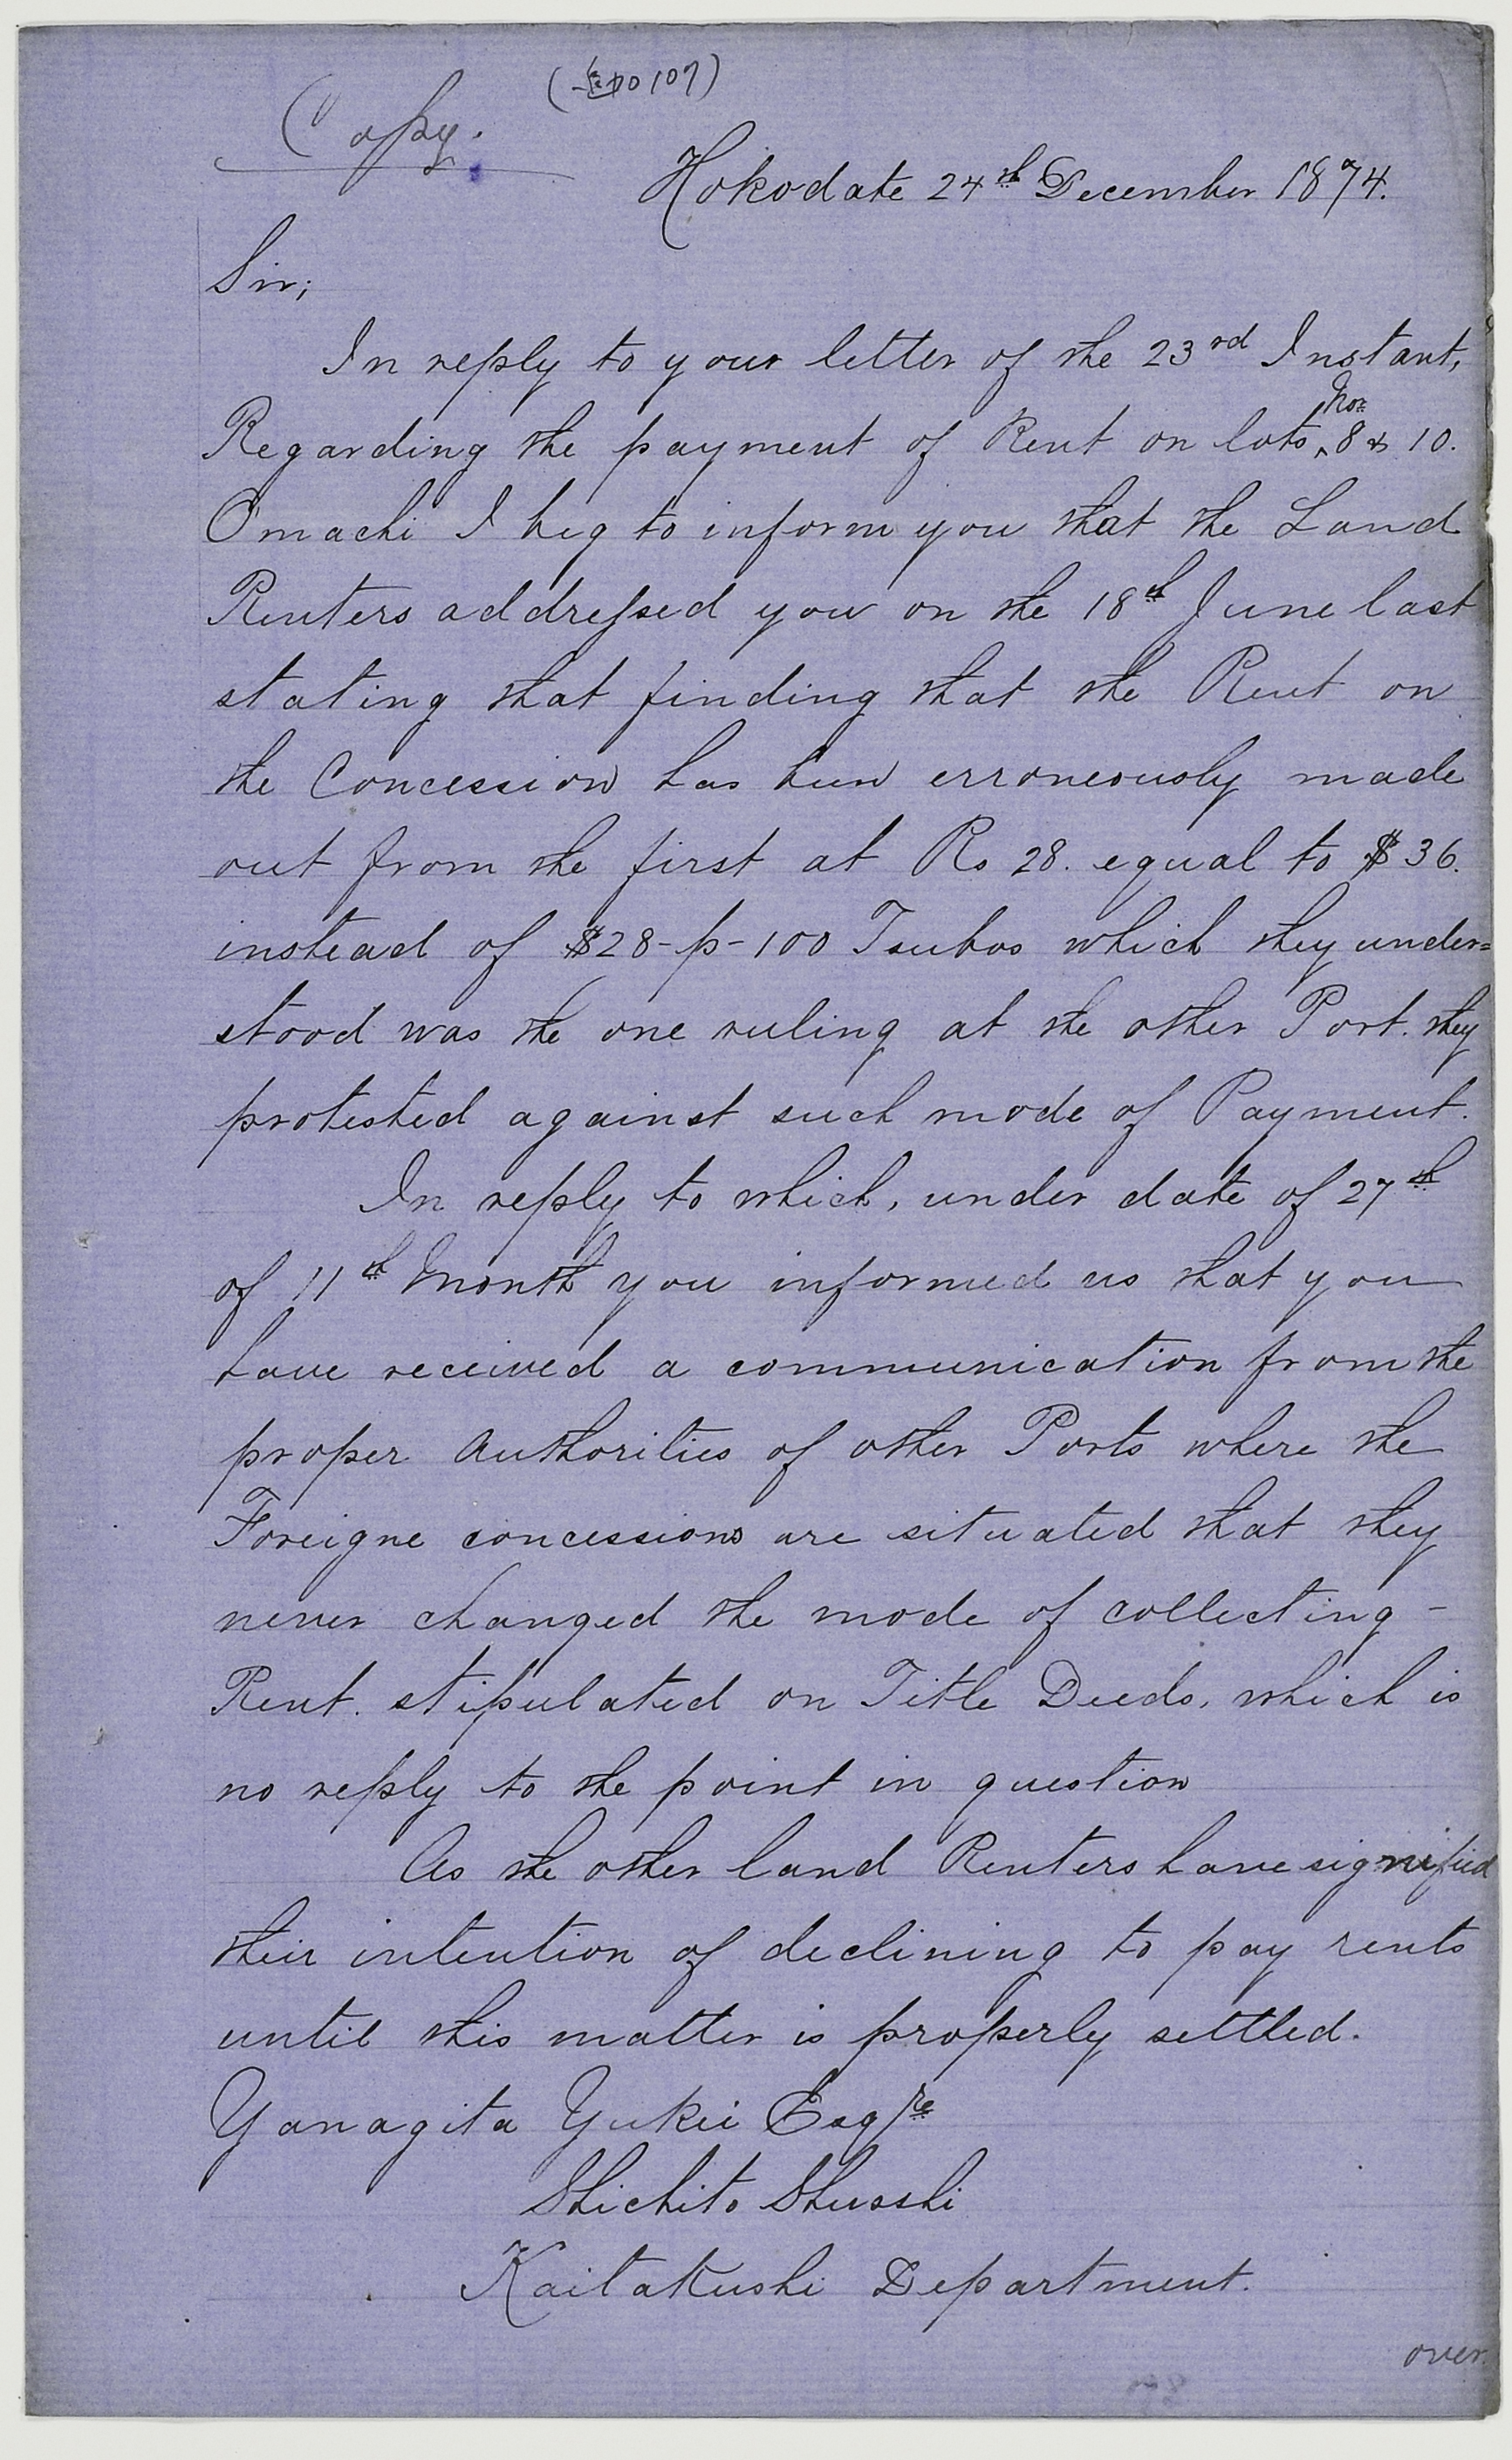 Copy.
Hokodate 24th December 1874.
Sir;
In reply to your letter of the 23rd Instant,
Regarding the payment of Rent on lots Nos 8 & 10.
Omachi I beg to inform you that the Land
Renters addressed you on the 18th June last
stating that finding that the Rent on
the Concession has been erroneously made
out from the first at Rs 28. equal to $36.
instead of $28-p-100 Tsubos which they under=
stood was the one ruling at the other Port. they
protested against such mode of Payment.
In reply to which, under date of 27th
of 11th Month you informed us that you
have received a communication from the
proper Authorities of other Ports where the
Foreigne concessions are situated that they
never changed the mode of collecting -
Rent. stipulated on Title Deeds, which is
no reply to the point in question
As the other land Renters have signified
their intention of declining to pay rents
until this matter is properly settled.
Yanagita Yukii Esqre
Shichito Shusshi
Kaitakushi Department.
over.